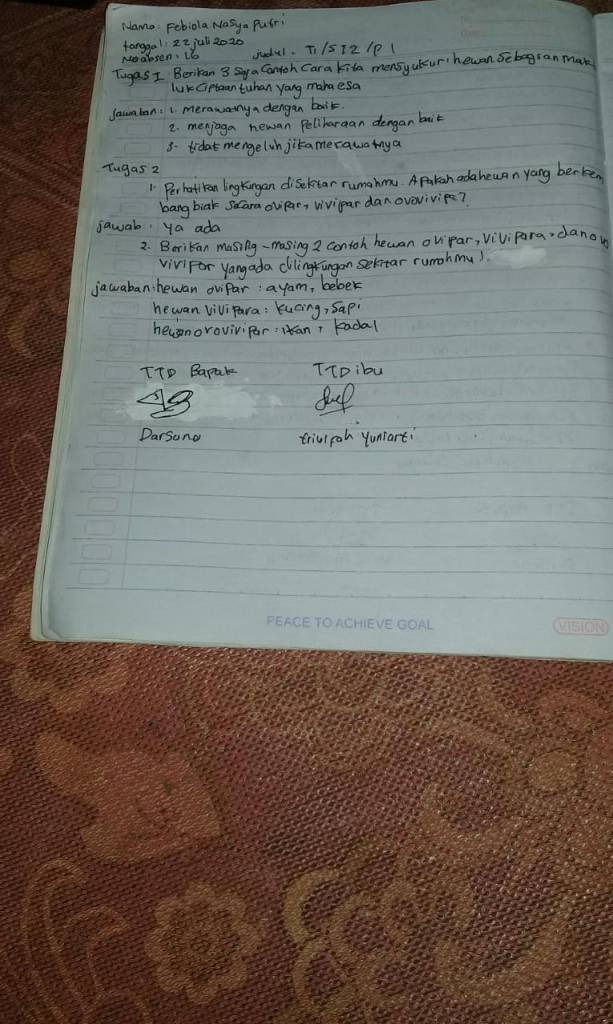 Nama : Febiola Nasya Putri
tanggal : 22 juli 2020
No absen : 16 judul - T1/ST2/P1
Tugas 1 Berikan 3 saja contoh cara kita mensyukuri hewan sebagian mak
luk ciptaan tuhan yang maha esa
jawaban : 1. Merawatnya dengan baik.
2. menjaga hewan Peliharaan dengan baik
3. tidak mengeluh jika merawatnya
Tugas 2
1. Perhatikan lingkungan disekitar rumahmu. Apakah ada hewan yang berkem
bang biak secara ovipar, vivipar dan ovovivipar?
jawab : ya ada
2. Berikan masing - masing 2 contoh hewan ovipar, vivipara, dan ovo
vivipar yang ada dilingkungan sekitar rumahmu!.
jawaban : hewan ovipar : ayam, bebek
hewan vivipara : kucing, sapi
hewan ovovivipar : ikan, kadal
TTD Bapak TTD ibu
Darsono Yuniarti
PEACE TO ACHIEVE GOAL
VISION